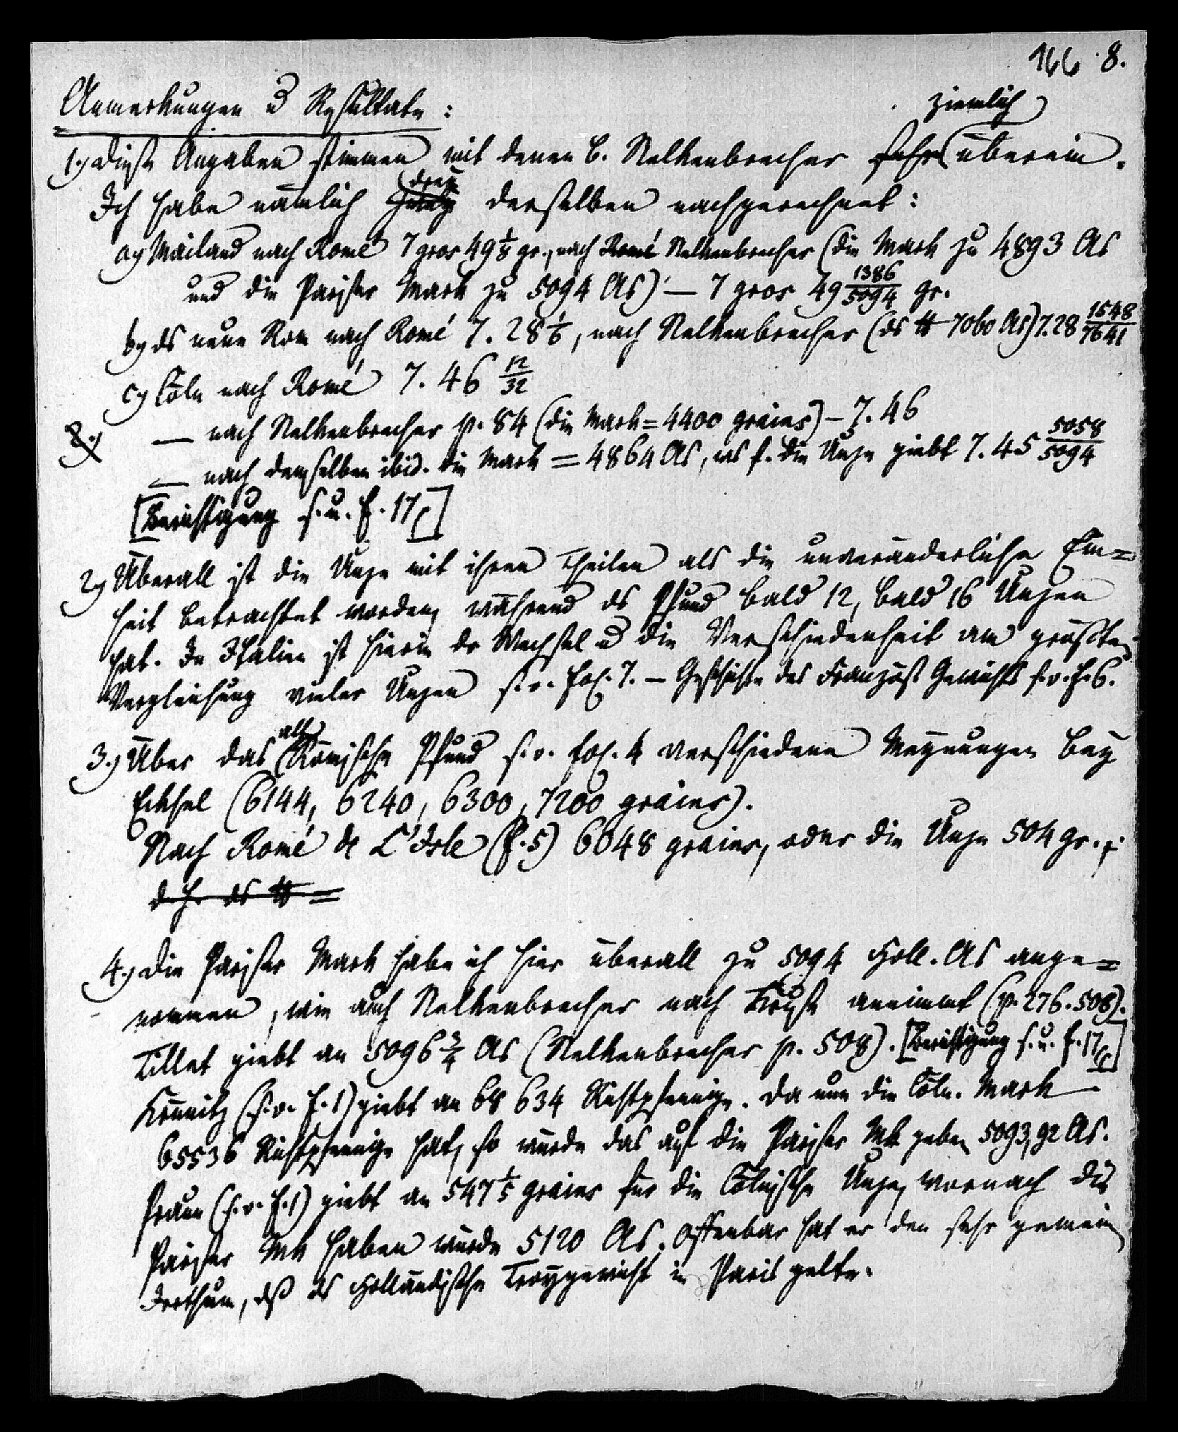 166 8.
Anmerkungen u Resultate:
ziemlich
1.) Diese Angaben stimmen mit denen b. Nelkenbrecher sehr überein.
drey
Ich habe nämlich derselben nachgerechnet:
a) Mailand nach Romé 7 gros 49 1/8 gr., nach Romé Nelkenbrecher (die Mark zu 4893 As
und die Pariser Mark zu 5094 As) — 7 gros 49 1386/5094 gr.
b) ds neue Rom nach Romé 7. 28 1/6, nach Nelkenbrecher (ds ℔ 7060 As) 7.28 1548/7641
c) Cöln nach Romé 7. 46 12/32
2.) — nach Nelkenbrecher p. 84 (die Mark = 4400 grains) — 7. 46
— nach demselben ibid. die Mark = 4864 As, was f. die Unze giebt 7. 45 5058/5094
[Berichtigung s. u. f. 17,c]
2) Überall ist die Unze mit ihren Theilen als die unveränderliche Ein=
heit betrachtet worden, während ds Pfund bald 12, bald 16 Unzen
hat. In Italien ist hierin dr Wechsel u die Verschiedenheit am größten
Vergleichung vieler Unzen s. v. fol. 7. — Geschichte des Französ Gewichts s. v. f. 6.
alt
3.) Über das Römische Pfund s. v. fol. 4 verschiedene Meynungen bey
Eckhel (6144, 6240, 6300, 7200 grains).
Nach Romé de L'Isle (f. 5) 6048 grains, oder die Unze 504 gr.,
d. h. ds ℔ =
4.) Die Pariser Mark habe ich hier überall zu 5094 Holl. As ange=
nommen, wie auch Nelkenbrecher nach Kruse annimmt (p. 276. 508).
Tillet giebt an 5096 3/4 As (Nelkenbrecher p. 508). [Berichtigung s. u. f. 17,c]
Krünitz (s. v. f. 1) giebt an 68 634 Richtpfennige. Da nun die Cöln. Mark
65536 Richtpfennige hat, so würde das auf die Pariser Mk geben 5093,92 As.
Praun (s. v. f. 1) giebt an 547 1/5 grains für die Cölnische Unze, wornach die
Pariser Mk haben würde 5120 As. Offenbar hat er den sehr gemein
Irrthum, dß ds Holländische Troygewicht in Paris gelte.